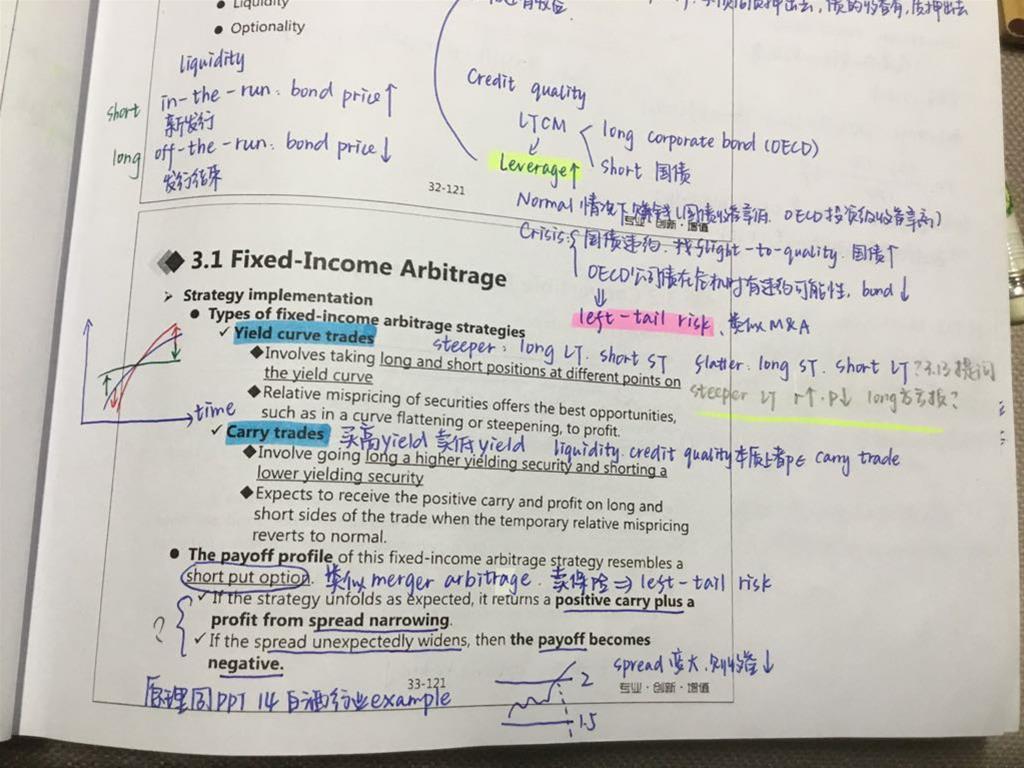 Liquidity
Optionality
liquidity
short in-the-run: bond price↑
新发行
long off-the-run: bond price↓
发行结束
32-121
Credit quality
LTCM
long corporate bond (OECD)
short 国债
Leverage↑
Normal 情况下赚钱(国债收益率低. OECD投资级收益率高)
专业·创新·增值
Crisis: 国债违约. 找flight-to-quality. 国债↑
OECD公司债在危机时有违约可能性, bond↓
left-tail risk、类似M&A
3.1 Fixed-Income Arbitrage
Strategy implementation
Types of fixed-income arbitrage strategies
✓ Yield curve trades
steeper: long LT. short ST flatter: long ST. short LT? 3.13提问
steeper LT r↑·P↓ long
◆Involves taking long and short positions at different points on
the yield curve
◆Relative mispricing of securities offers the best opportunities,
such as in a curve flattening or steepening, to profit.
time
✓ Carry trades 买高yield 卖低yield liquidity. credit quality本质上都是 carry trade
◆Involve going long a higher yielding security and shorting a
lower yielding security
◆Expects to receive the positive carry and profit on long and
short sides of the trade when the temporary relative mispricing
reverts to normal.
The payoff profile of this fixed-income arbitrage strategy resembles a
short put option. 类似merger arbitrage. 卖保险⇒left-tail risk
✓ If the strategy unfolds as expected, it returns a positive carry plus a
profit from spread narrowing.
?
✓ If the spread unexpectedly widens, then the payoff becomes
negative.
spread变大, 则收益↓
33-121
专业·创新·增值
原理同PPT 14 白酒行业example
2
1.5